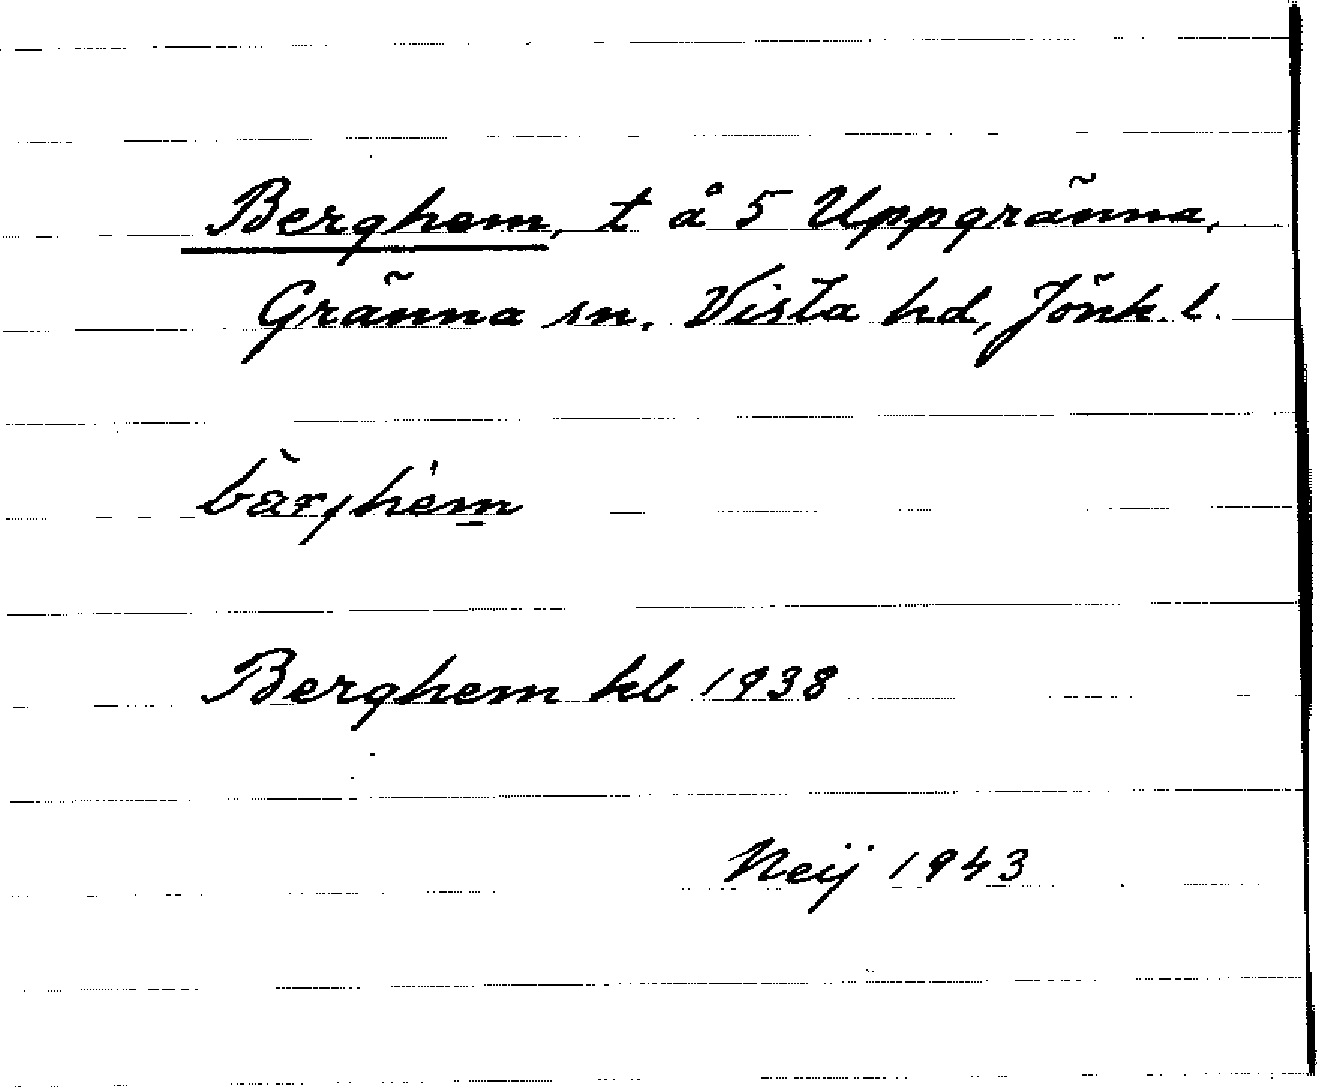 Berghem, t å 5 Uppgränna,
Gränna sn. Vista hd, Jönk. l.
Berghem kb 1938
Neij 1943